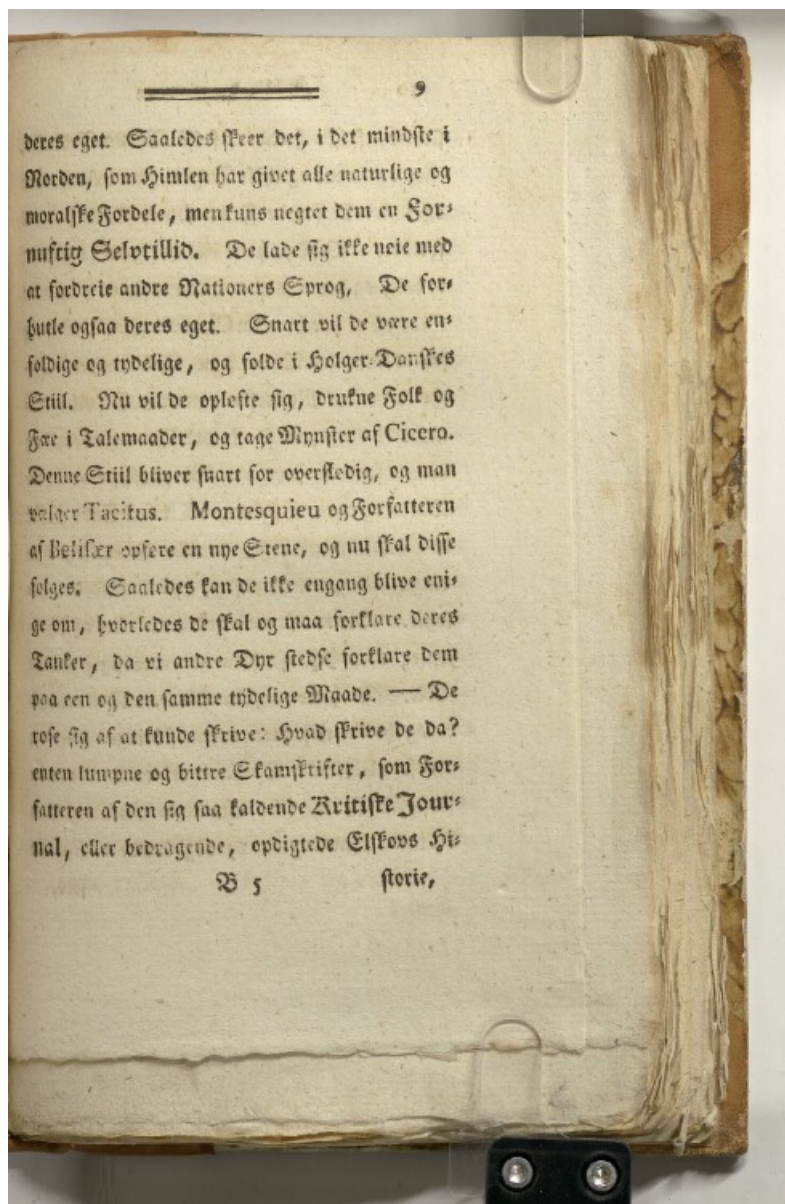 9
deres eget. Saaledes skeer det, i det mindste i
Norden, som Himlen har givet alle naturlige og
moralske Fordele, men kuns negtet dem en For-
nuftig Selvtillid. De lade sig ikke nøie med
at fordreie andre Nationers Sprog, De for-
hutle ogsaa deres eget. Snart vil de være en-
foldige og tydelige, og falde i Holger Danskes
Stiil. Nu vil de opløfte sig, drukne Folk og
Fæe i Talemaader, og tage Mynster af Cicero.
Denne Stiil bliver snart for overflødig, og man
vælger Tacitus. Montesquieu og Forfatteren
af Belisær opføre en nye Scene, og nu skal disse
følges. Saaledes kan de ikke engang blive eni-
ge om, hvorledes de skal og maa forklare deres
Tanker, da vi andre Dyr stedse forklare dem
paa een og den samme tydelige Maade. — De
rose sig af at kunde skrive: Hvad skrive de da?
enten lumpne og bittre Skamskrifter, som For-
fatteren af den sig saa kaldende Kritiske Jour-
nal, eller bedragende, opdigtede Elskovs Hi-
B 5 storie,